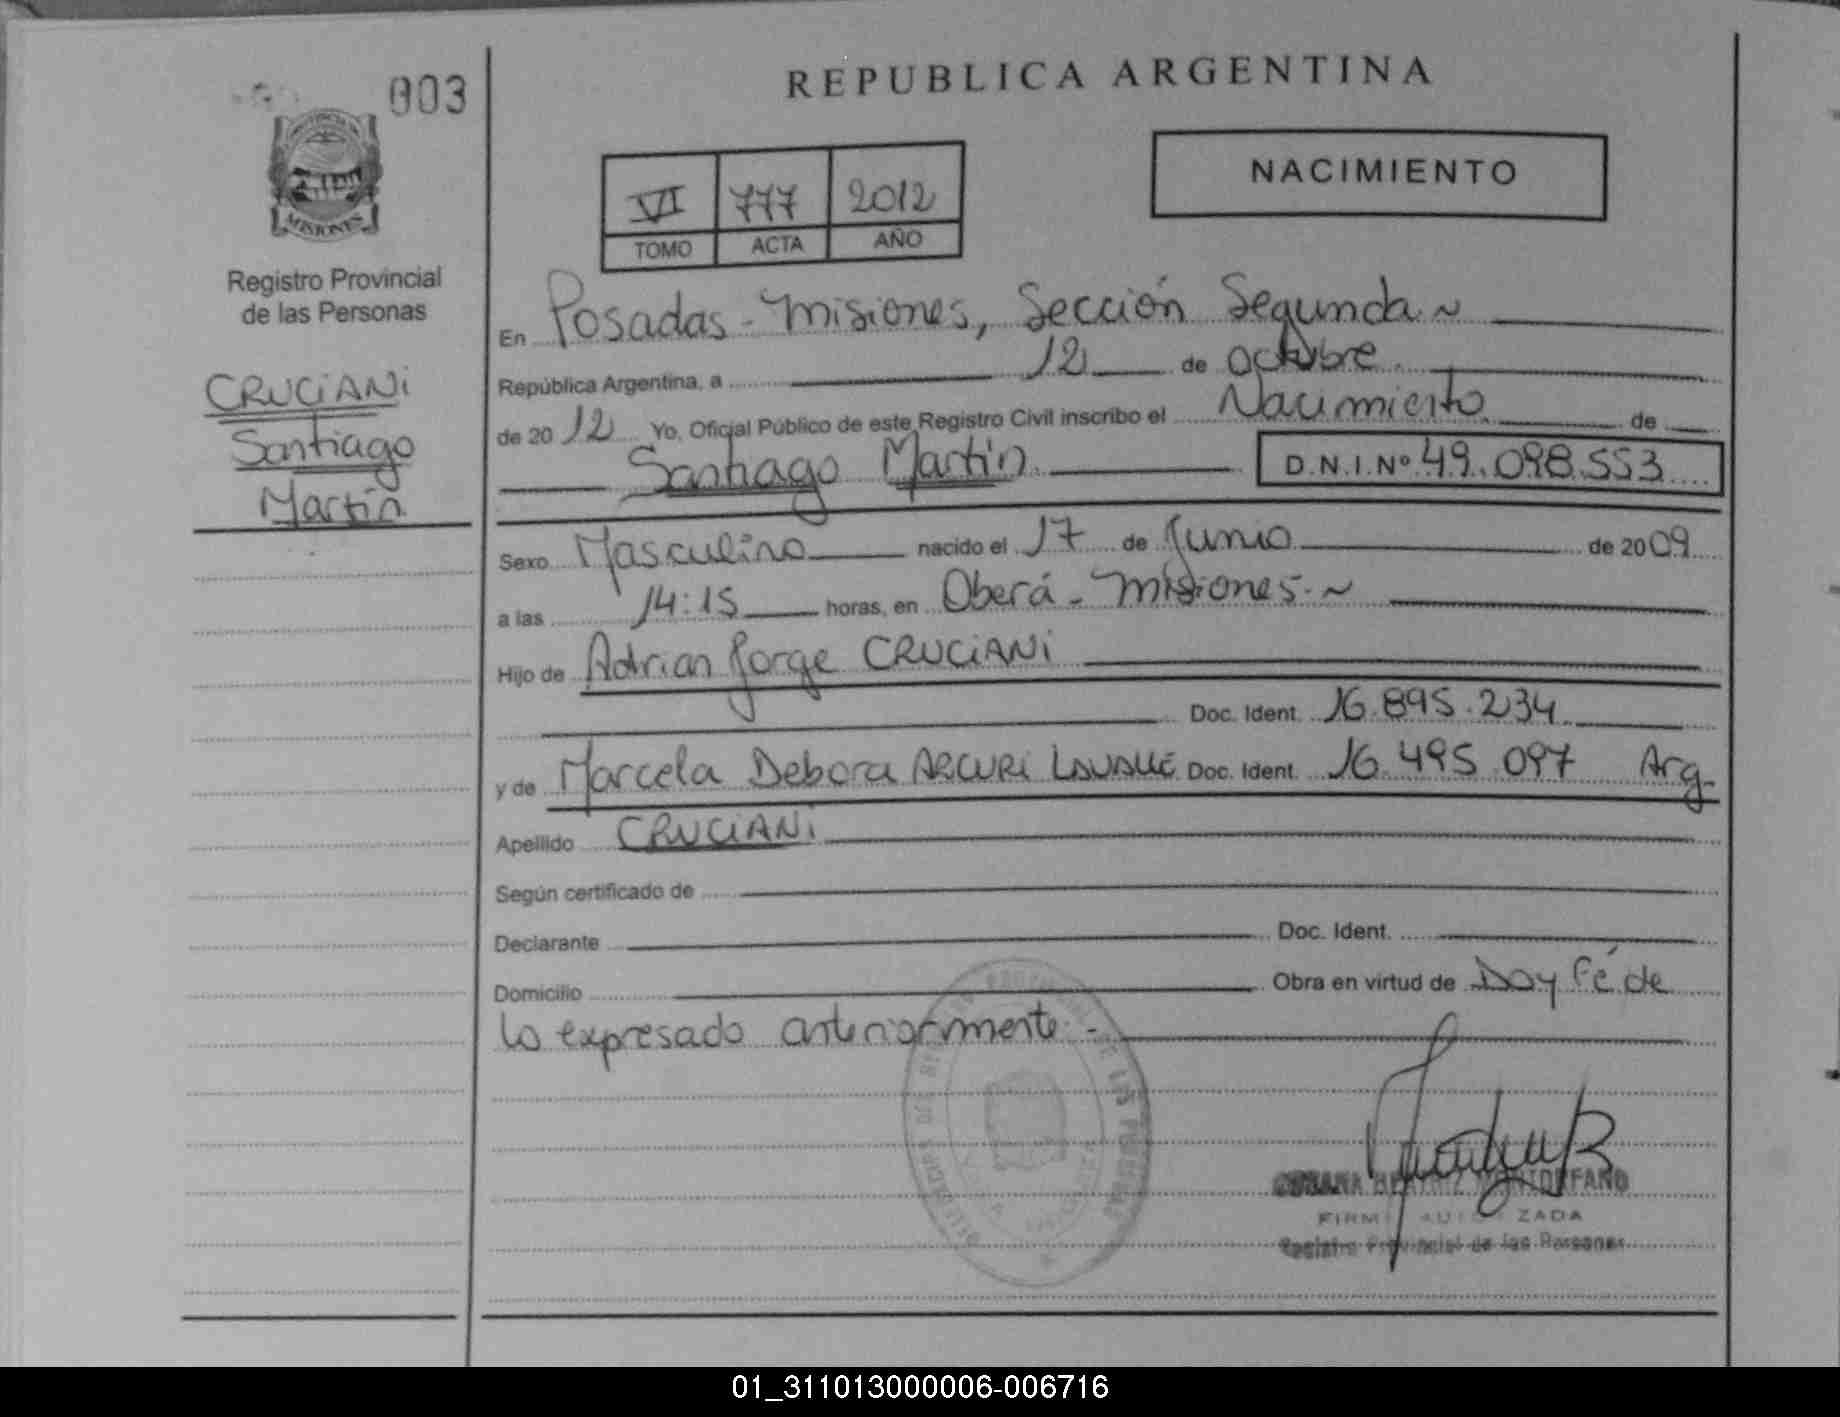 003
REPUBLICA ARGENTINA
PROVINCIA DE
MISIONES
Registro Provincial
de las Personas
CRUCIANI
Santiago
Martín
VI 777 2012
TOMO ACTA AÑO
NACIMIENTO
En Posadas - Misiones, Sección Segunda
República Argentina, a 12 de octubre
de 2012 Yo, Oficial Público de este Registro Civil inscribo el Nacimiento de
Santiago Martín D.N.I.Nº 49.098.553
Sexo Masculino nacido el 17 de Junio de 2009
a las 14:15 horas, en Oberá - Misiones.
Hijo de Adrian Jorge CRUCIANI
Doc. Ident. 16.895.234
y de Marcela Debora ARCURI LAVALLE Doc. Ident. 16.495.097 Arg.
Apellido CRUCIANI
Según certificado de
Declarante Doc. Ident.
Domicilio Obra en virtud de Doy Fé de
lo expresado anteriormente.-
SUSANA BEATRIZ
FIRMA AUTORIZADA
Registro Provincial de las Personas
01_311013000006-006716